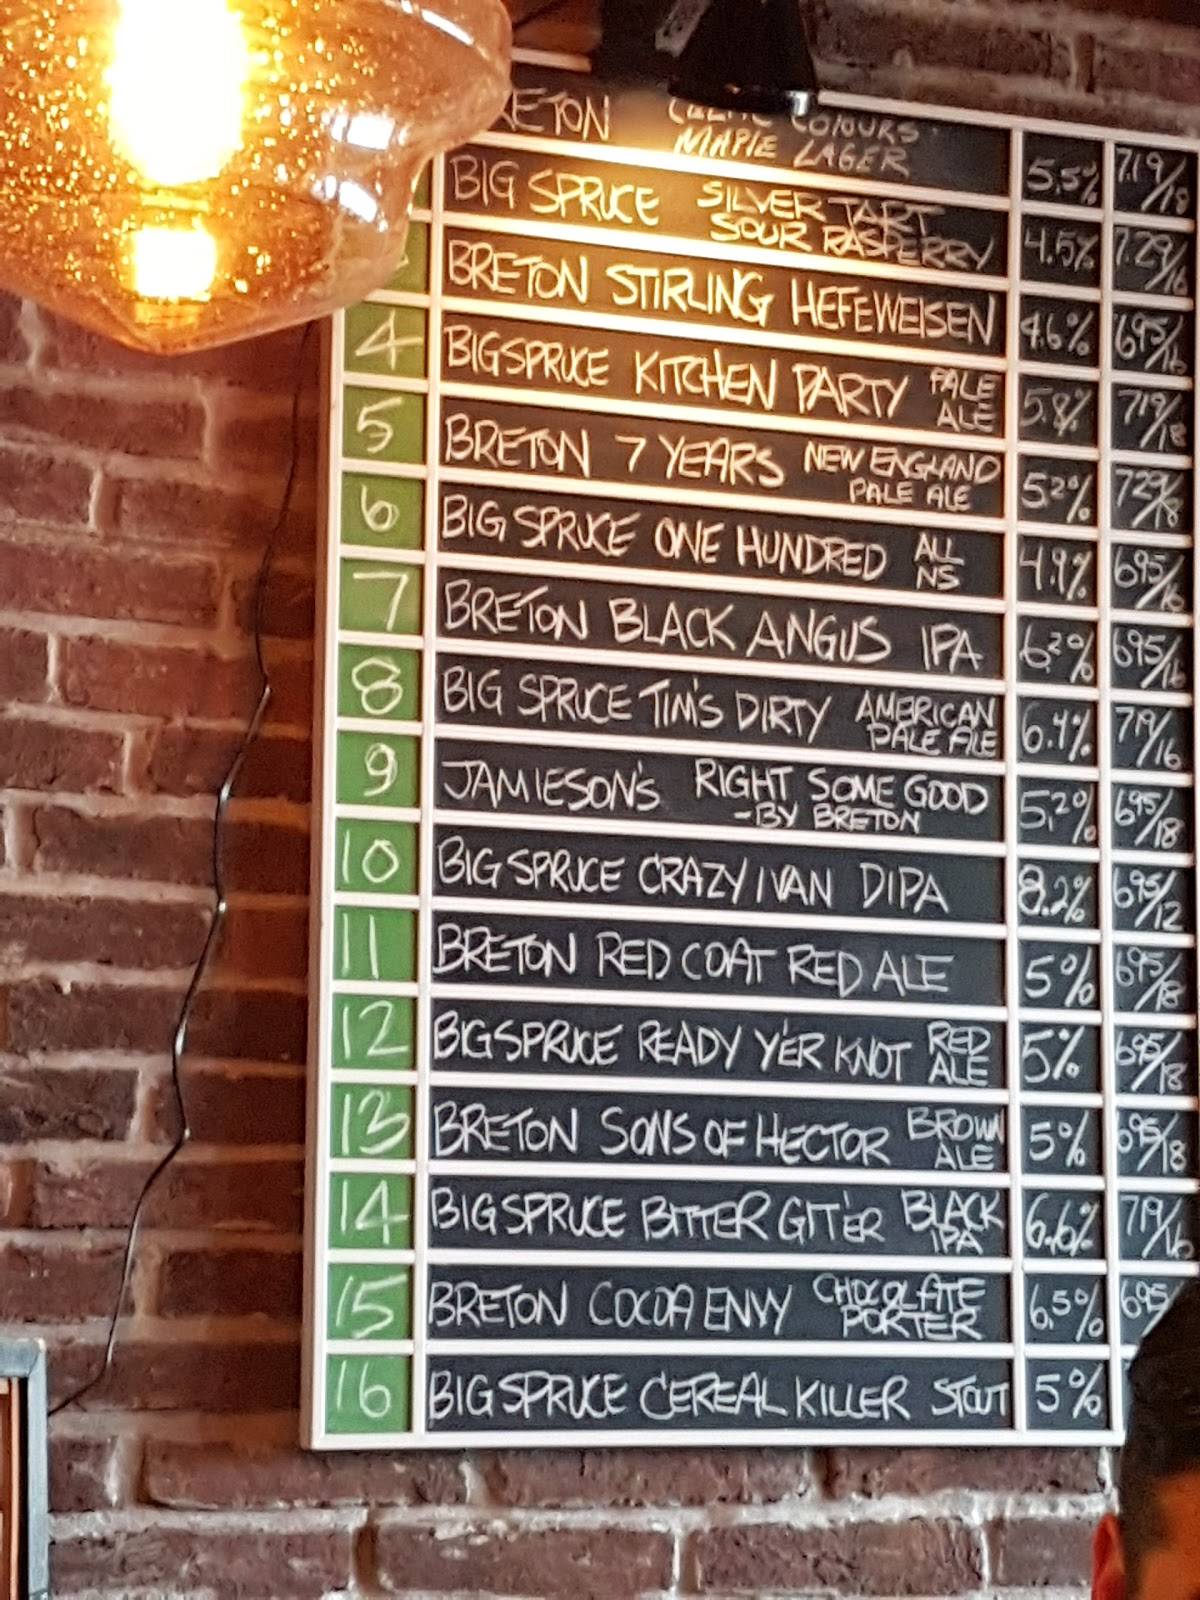 BRETON COLOURS 5.5% 7.19/18
MAPLE LAGER
BIG SPRUCE SILVER TART 4.5% 7.29/16
SOUR RASPERRY
BRETON STIRLING HEFEWEISEN 4.6% 695/16
4 BIG SPRUCE KITCHEN PARTY PALE ALE 5.8% 719/18
5 BRETON 7 YEARS NEW ENGLAND 5.2% 729/18
PALE ALE
6 BIG SPRUCE ONE HUNDRED ALL NS 4.9% 695/16
7 BRETON BLACK ANGUS IPA 6.2% 695/16
8 BIG SPRUCE TIM'S DIRTY AMERICAN 6.4% 719/16
PALE ALE
9 JAMIESON'S RIGHT SOME GOOD 5.2% 695/18
-BY BRETON
10 BIG SPRUCE CRAZY IVAN DIPA 8.2% 695/12
11 BRETON RED COAT RED ALE 5% 695/18
12 BIG SPRUCE READY Y'ER KNOT RED ALE 5% 695/18
13 BRETON SONS OF HECTOR BROWN ALE 5% 695/18
14 BIG SPRUCE BITTER GIT'ER BLACK IPA 6.6% 719/16
15 BRETON COCOA ENVY CHOCOLATE 6.5% 695
PORTER
16 BIG SPRUCE CEREAL KILLER STOUT 5%